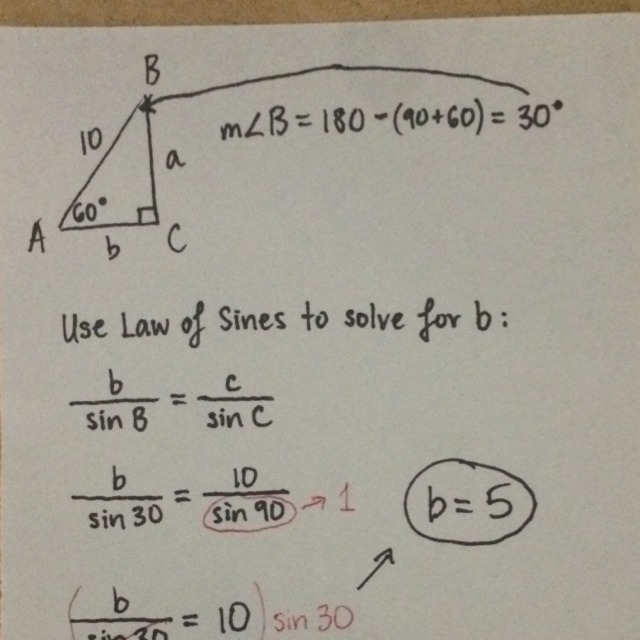 B
m∠B = 180 - (90+60) = 30°
10
a
60°
A
b
C
Use Law of Sines to solve for b:
b/sin B = c/sin C
b/sin 30 = 10/sin 90 → 1
b = 5
(b/sin 30 = 10) sin 30